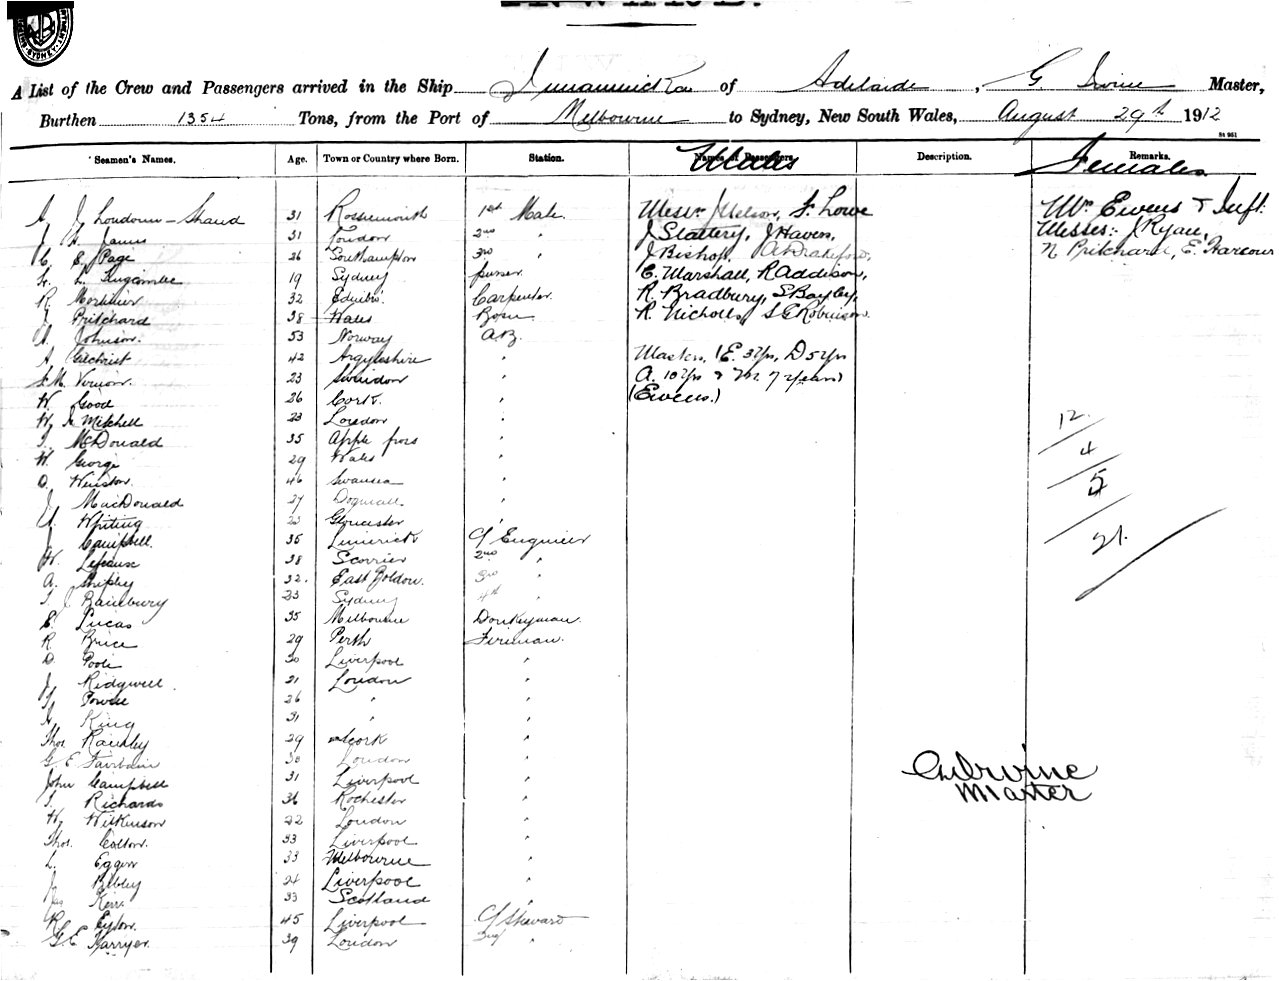 A List of the Crew and Passengers arrived in the Ship of Adelaide, G. Irvine Master,
Burthen 1354 Tons, from the Port of Melbourne to Sydney, New South Wales, August 29th 1912
St 951
Seamen's Names. Age. Town or Country where Born. Station. Names of Passengers Males Description. Remarks. Females
31 1st Mate. Messrs J Nelson, F. Lowe Mrs Ewens & Inft.
James 31 London 2nd " J Slattery, J Haven, Misses:- J Ryan,
C. E. Page 26 Southampton 3rd " J Bishop, N Pritchard, E. Harcour
19 Sydney purser E. Marshall, R Addison,
R. Mortimer 32 Carpenter R. Bradbury, S Bayley,
Pritchard 38 Wales Bosun R. Nicholls, S E Robinson.
Johnson. 53 Norway A.B.
A. Gilchrist 42 Argyleshire " Masters, (E. 3yrs, D 5yrs
Vernon. 23 Swindon " A. 10yrs & M. 7 years)
W. Good 26 Cork. " (Ewens.)
W. Mitchell 23 London " 12.
McDonald 35 " 4
W. George 29 Wales " 5
46 Swansea "
J MacDonald 27 "
Whiting 23 Gloucester "
J Campbell. 35 Limerick C/ Engineer 21.
38 Scorrier 2nd "
A. Shipley 32. East Boldon. 3rd "
J. 23 Sydney 4th "
E. Lucas 35 Melbourne Donkeyman.
R Brice 29 Perth Fireman.
D. Poole 30 Liverpool "
J Ridgwell 21 London "
Powell 26 " "
King 31 " "
Thos 29 Cork "
G. E Fairbairn 30 London "
John Campbell 31 Liverpool "
Richards 36 Rochester "
W. Wilkinson 22 London "
Thos. Colton. 33 Liverpool "
L. 33 Melbourne "
J Bibby 24 Liverpool "
Jas Kerr. 33 Scotland "
R. Eyton. 45 Liverpool C/ Steward
G. E 39 London 2nd "
Irvine
Master